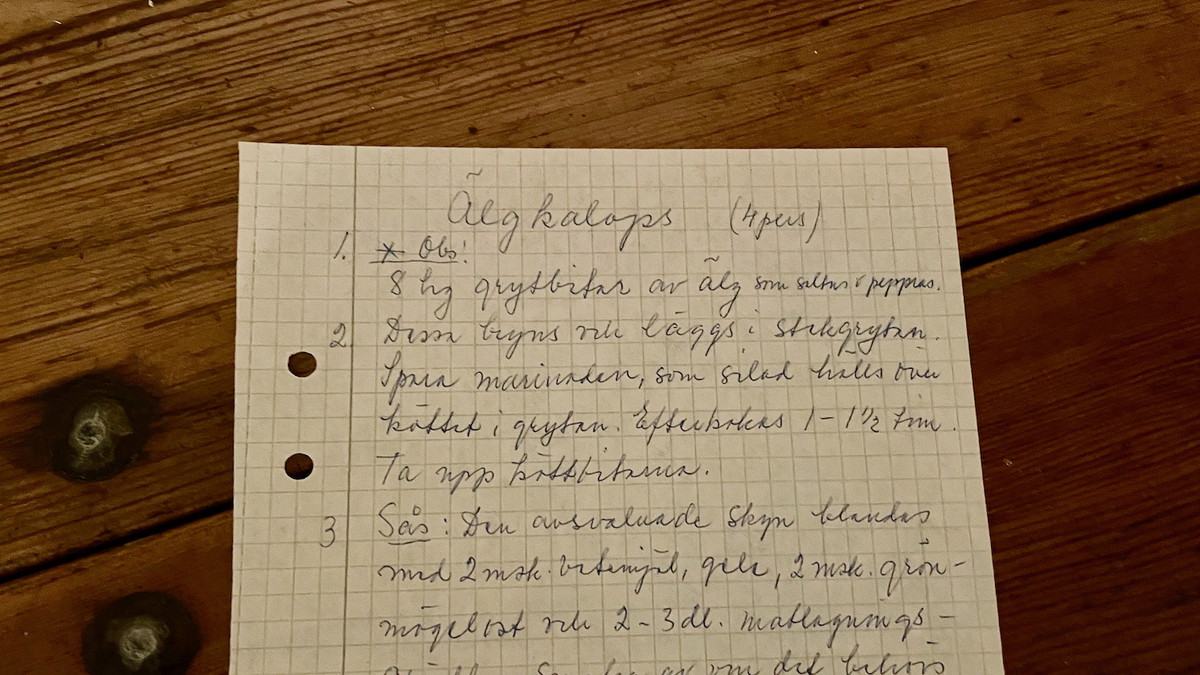 Älgkalops (4 pers)
1. * Obs!
8 hg grytbitar av älg som saltas o peppras.
2. Dessa bryns och läggs i stekgrytan.
Spara marinaden, som silad hälls över
köttet i grytan. Efterkokas 1 – 1 1/2 tim.
Ta upp köttbitarna.
3 Sås: Den avsvalnade skyn blandas
med 2 msk. vetemjöl, gele, 2 msk. grön-
mögelost och 2 – 3 dl. matlagnings-
av om det behövs